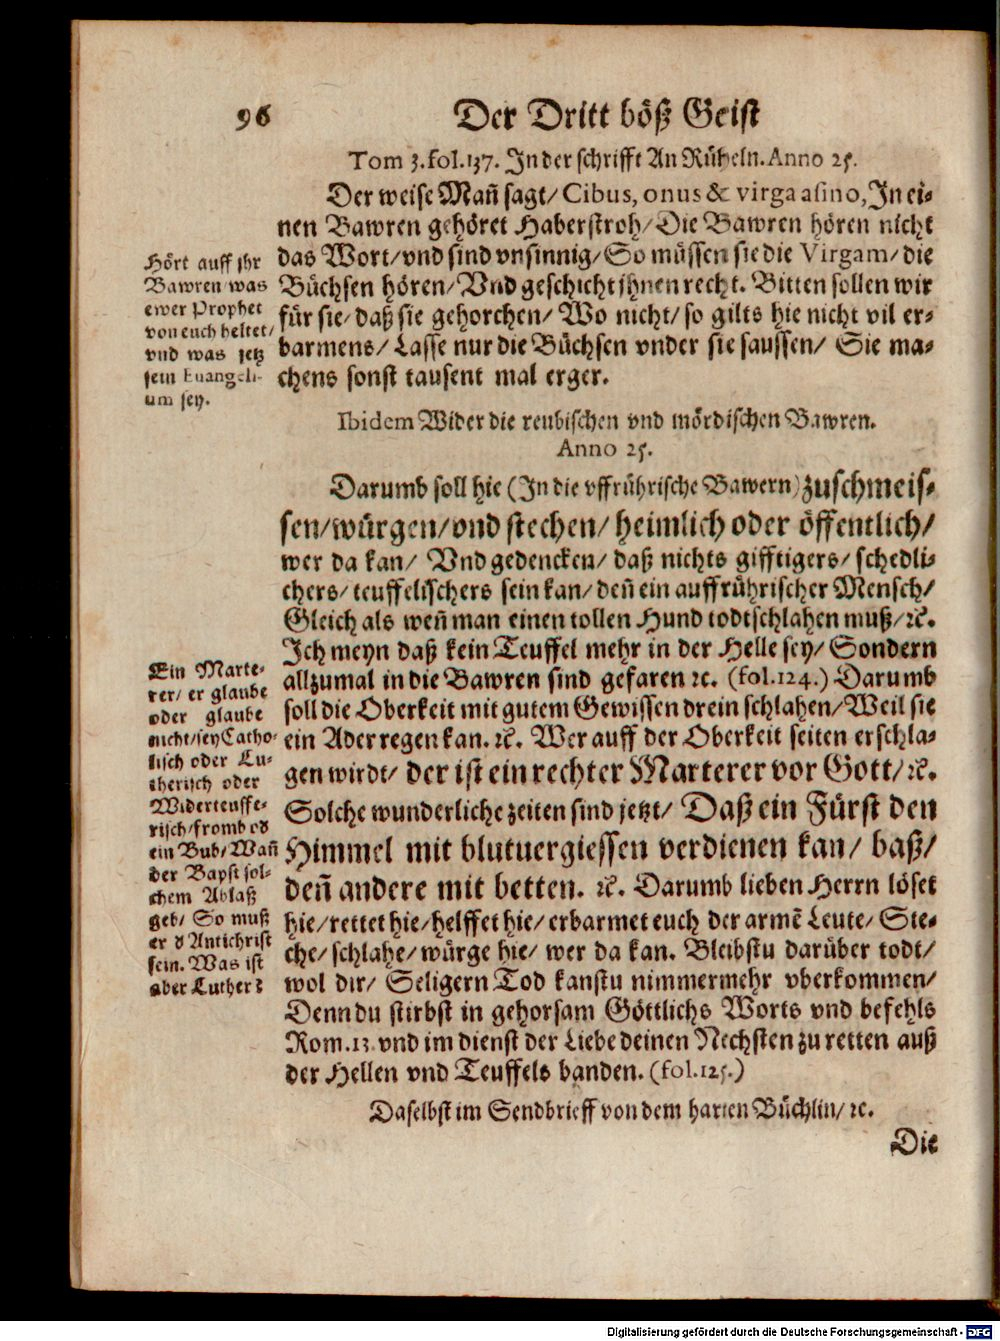 96
Der Dritt böß Geist
Tom 3. fol. 137. In der schrifft An Rüheln. Anno 25.
Der weise Mañ sagt/ Cibus, onus & virga asino, In ei-
nen Bawren gehöret Haberstroh/ Die Bawren hören nicht
das Wort/ vnd sind vnsinnig/ So müssen sie die Virgam/ die
Büchsen hören/ Vnd geschicht ihnen recht. Bitten sollen wir
für sie/ daß sie gehorchen/ Wo nicht/ so gilts hie nicht vil er-
barmens/ Lasse nur die Büchsen vnder sie saussen/ Sie ma-
chens sonst tausent mal erger.
Hört auff ihr
Bawren was
ewer Prophet
von euch heltet/
vnd was jetz
sein Euangeli-
um sey.
Ibidem Wider die reubischen vnd mördischen Bawren.
Anno 25.
Darumb soll hie (In die vffrührische Bawern) zuschmeis-
sen/ würgen/ vnd stechen/ heimlich oder öffentlich/
wer da kan/ Vnd gedencken/ daß nichts gifftigers/ schedli-
chers/ teuffelischers sein kan/ deñ ein auffrührischer Mensch/
Gleich als weñ man einen tollen Hund todtschlahen muß/ ꝛc.
Ich meyn daß kein Teuffel mehr in der Helle sey/ Sondern
allzumal in die Bawren sind gefaren ꝛc. (fol. 124.) Darumb
soll die Oberkeit mit gutem Gewissen drein schlahen/ Weil sie
ein Ader regen kan. ꝛc. Wer auff der Oberkeit seiten erschla-
gen wirdt/ der ist ein rechter Marterer vor Gott/ ꝛc.
Solche wunderliche zeiten sind jetzt/ Daß ein Fürst den
Himmel mit blutuergiessen verdienen kan/ baß/
deñ andere mit betten. ꝛc. Darumb lieben Herrn löset
hie/ rettet hie/ helffet hie/ erbarmet euch der armē Leute/ Ste-
che/ schlahe/ würge hie/ wer da kan. Bleibstu darüber todt/
wol dir/ Seligern Tod kanstu nimmermehr vberkommen/
Denn du stirbst in gehorsam Göttlichs Worts vnd befehls
Rom. 13. vnd im dienst der Liebe deinen Nechsten zu retten auß
der Hellen vnd Teuffels banden. (fol. 125.)
Ein Marte-
rer/ er glaube
oder glaube
nicht/ sey Catho-
lisch oder Lu-
therisch oder
Widerteuffe-
risch/ fromb oð
ein Bub/ Wañ
der Bapst sol-
chem Ablaß
geb/ So muß
er ð Antichrist
sein. Was ist
aber Luther?
Daselbst im Sendbrieff von dem harten Büchlin/ ꝛc.
Die
Digitalisierung gefördert durch die Deutsche Forschungsgemeinschaft - DFG